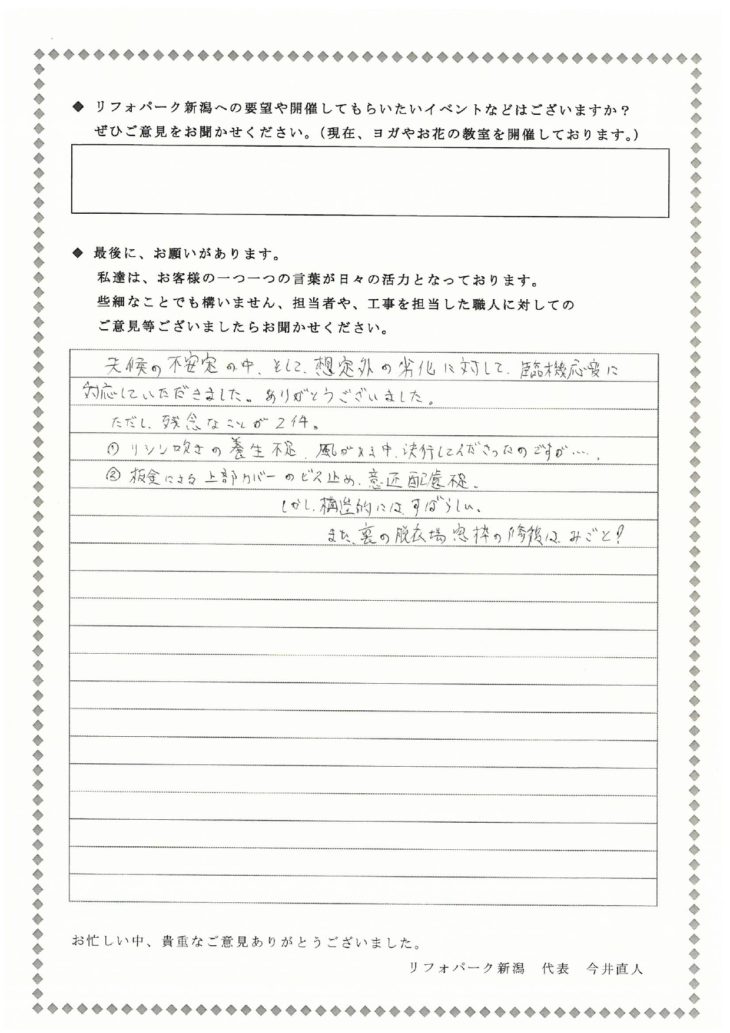 ◆ リフォパーク新潟への要望や開催してもらいたいイベントなどはございますか？
ぜひご意見をお聞かせください。（現在、ヨガやお花の教室を開催しております。）
◆ 最後に、お願いがあります。
私達は、お客様の一つ一つの言葉が日々の活力となっております。
些細なことでも構いません、担当者や、工事を担当した職人に対しての
ご意見等ございましたらお聞かせください。
天候の不安定の中、そして、想定外の劣化に対して、臨機応変に
対応していただきました。ありがとうございました。
ただし、残念なことが2件。
① リシン吹きの養生不足、風が 中、決行してくださったのですが…、
② 板金による上部カバーのビス止め、意匠配慮不足。
しかし、構造的にはすばらしい。
また、裏の脱衣場窓枠の修復は、みごと！
お忙しい中、貴重なご意見ありがとうございました。
リフォパーク新潟　代表　今井直人